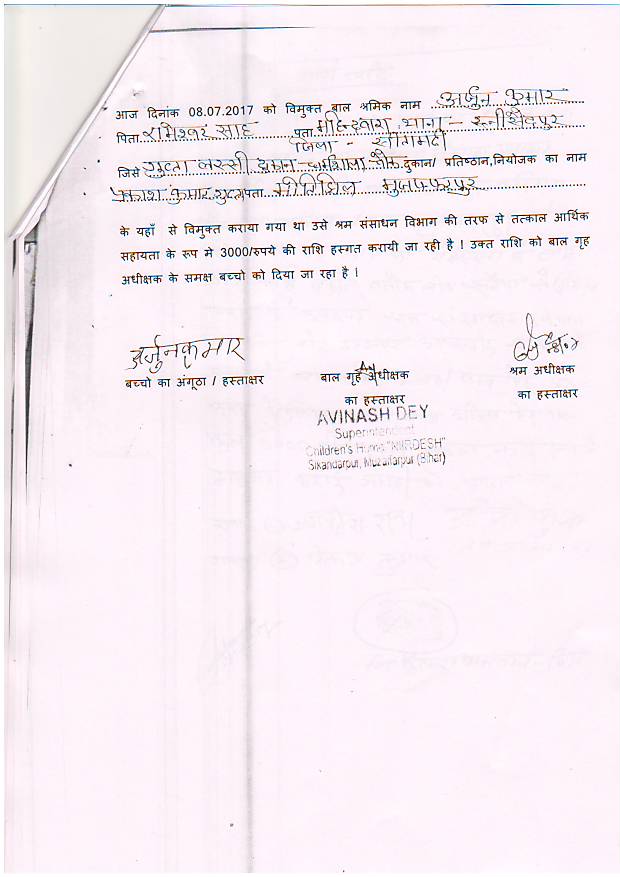 आज दिनांक 08.07.2017 को विमुक्त बाल श्रमिक नाम ..अर्जुन कुमार....
पिता..रामेश्वर साह ....पता..महिन्दवारा, थाना - रून्नीसैदपुर
जिला - सीतामढी
जिसे गुप्ता लस्सी दुकान-धर्मशाला चौक.दुकान/ प्रतिष्ठान,नियोजक का नाम
प्रकाश कुमार गुप्ता,पता.. मोतिझिल मुजफ्फरपुर.....
के यहाँ से विमुक्त कराया गया था उसे श्रम संसाधन विभाग की तरफ से तत्काल आर्थिक
सहायता के रूप मे 3000/रुपये की राशि हस्गत करायी जा रही है ! उक्त राशि को बाल गृह
अधीक्षक के समक्ष बच्चो को दिया जा रहा है ।
अर्जुन कुमार
बच्चो का अंगूठा / हस्ताक्षर
बाल गृह अधीक्षक
का हस्ताक्षर
AVINASH DEY
Superintendent
Children's Home "NIRDESH"
Sikandarpur, Muzaffarpur (Bihar)
श्रम अधीक्षक
का हस्ताक्षर